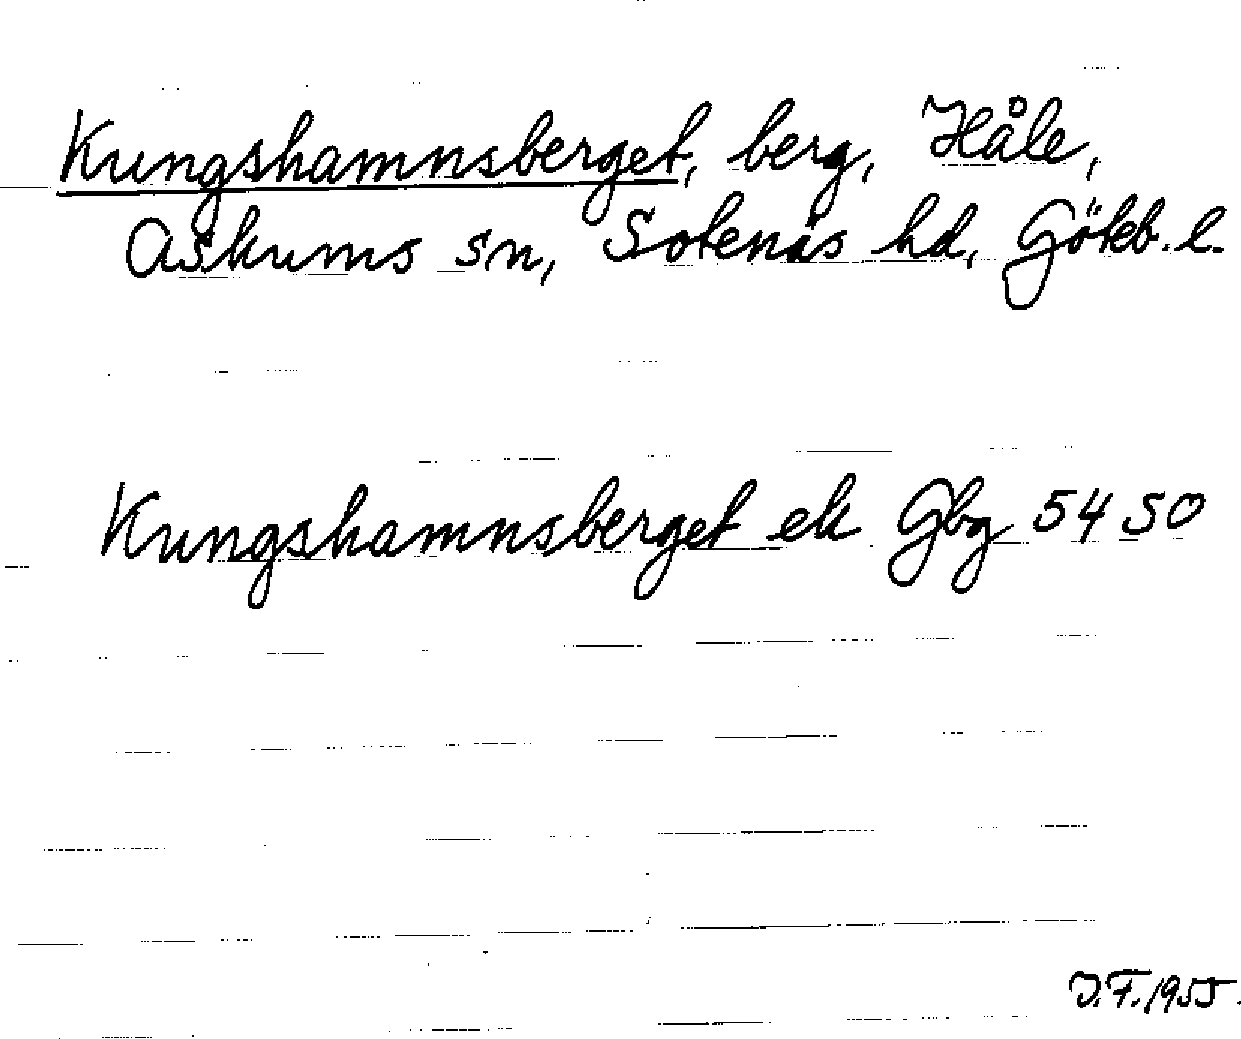 Kungshamnsberget, berg, Håle,
Askums sn, Sotenäs hd, Göteb. l.
Kungshamnsberget ek Gbg 54 50
J.F. 1955.